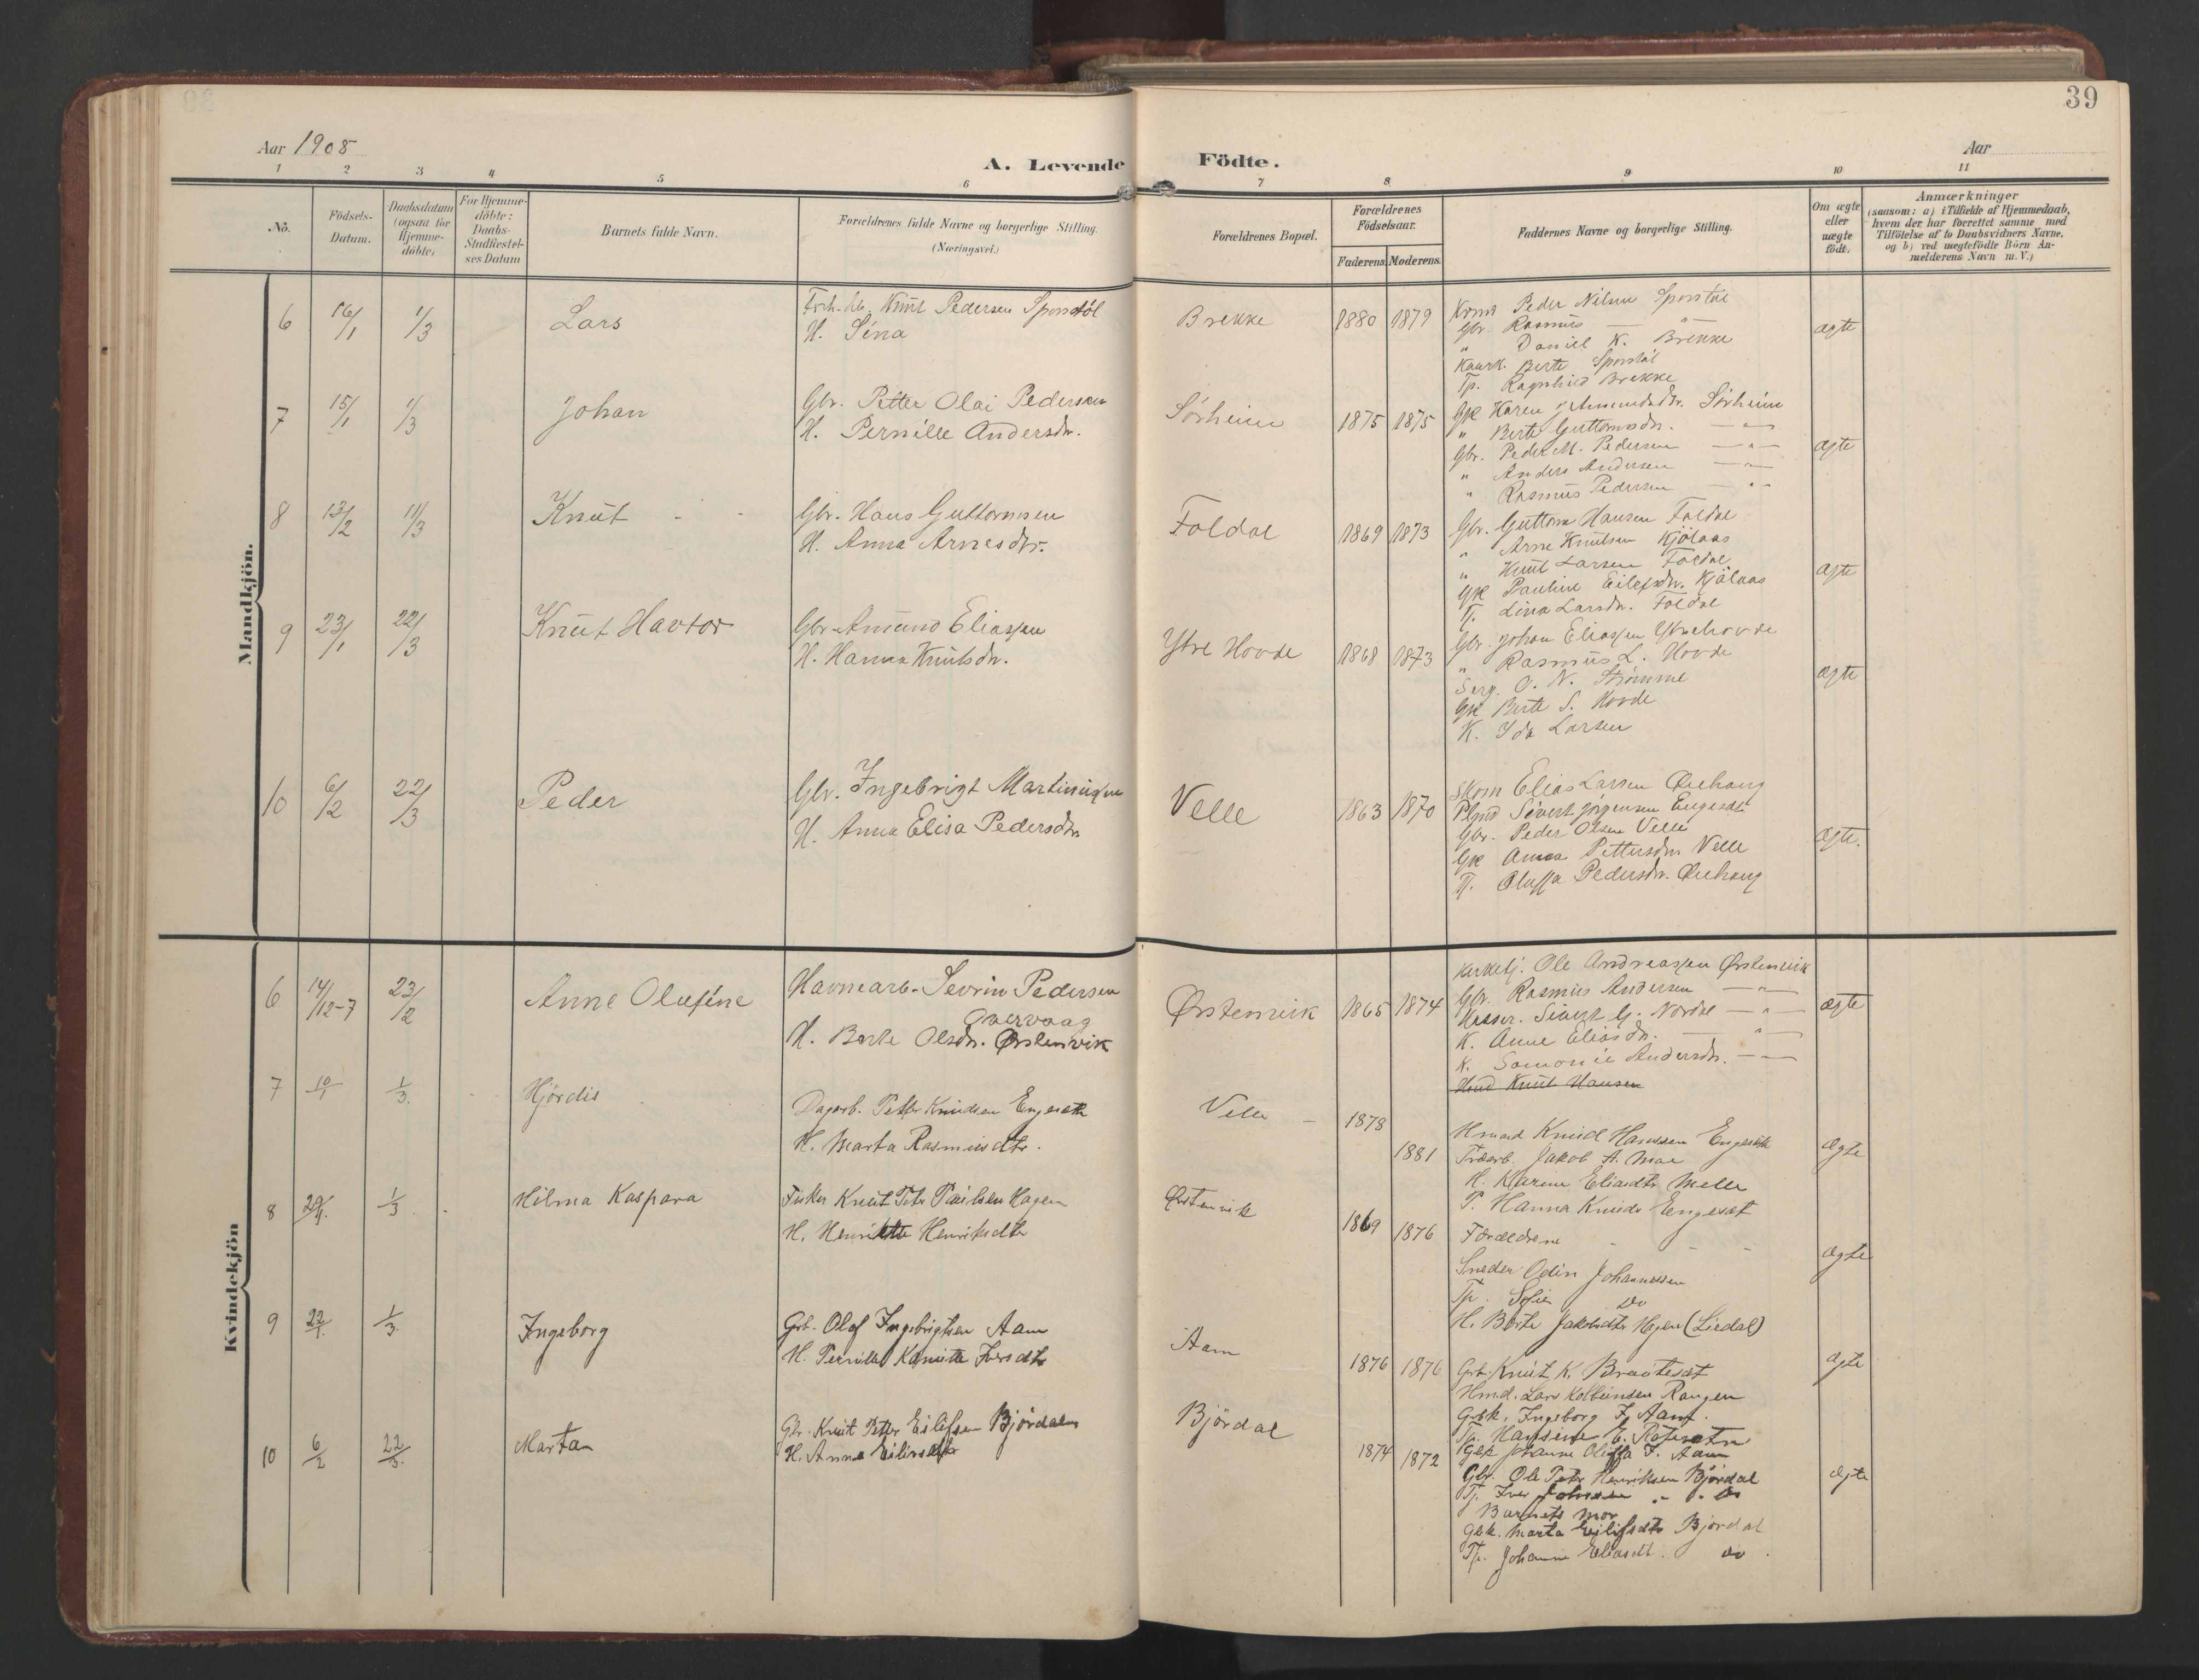 39
Aar 1908
A. Levende Födte.
Aar
1 2 3 4 5 6 7 8 9 10 11
No.
Födsels-Datum.
Daabsdatum (ogsaa for Hjemme-döbte)
For Hjemme-döbte: Daabs-Stadfæstel-ses Datum
Barnets fulde Navn.
Forældrenes fulde Navne og borgerlige Stilling.
(Næringsvei.)
Forældrenes Bopæl.
Forældrenes Födselsaar.
Faderens. Moderens.
Faddernes Navne og borgerlige Stilling.
Om ægte eller uægte födt.
Anmærkninger
(saasom: a) i Tilfælde af Hjemmedaab,
hvem der har forrettet samme med
Tilföielse af to Daabsvidners Navne,
og b) ved uægtefödte Börn An-
melderens Navn m.V.)
Mandkjön.
6 16/1 1/3 Lars
Knut Pedersen Sporstöl
H. Sina
Brekke 1880 1879
Peder Nilsen Sporstöl
Gbr. Rasmus — " —
" Daniel K. Brekke
Berte Sporstöl
Tp. Ragnhild Brekke
ægte
7 15/1 1/3 Johan
Gbr. Petter Olai Pedersen
H. Pernille Andersdtr.
Sörheim 1875 1875
Gk Karen Amundsdtr. Sörheim
" Berte Guttormsdtr. — " —
Gbr. Peder M. Pedersen — " —
" Anders Andersen — " —
" Rasmus Pedersen — " —
ægte
8 13/2 11/3 Knut
Gbr. Hans Guttormsen
H. Anna Arnesdtr.
Foldal 1869 1873
Gbr. Guttorm Hansen Foldal
" Arne Knutsen Kjölaas
" Knut Larsen Foldal
Gk Pauline Eilefsdtr. Kjölaas
Tj. Lina Larsdtr. Foldal
ægte
9 23/1 22/3 Knut Havtor
Gbr. Amund Eliassen
H. Hanna Knutsdtr.
Ytre Hovde 1868 1873
Gbr. Johan Eliassen Ytrehovde
" Rasmus L. Hovde
Serg. O. N. Strömme
Gk Berte S. Hovde
K. Ida Larsen
ægte
10 6/2 22/3 Peder
Gbr. Ingebrigt Martinussen
H. Anna Elisa Pedersdtr.
Velle 1863 1870
Skom Elias Larsen
Sivert Jörgensen Engeset
Gbr. Peder Olsen Velle
Gk Anna Pettersdtr Velle
Tj. Oluffa Pedersdtr.
ægte.
Kvindekjön
6 14/12-7 23/2 Anne Olufine
Havnearb. Sevrin Pedersen
Overvaag
H. Berte Olsdtr. Ørstenvik
Ørstenvik 1865 1874
Kirketj. Ole Andreassen Ørstenvik
Gbr. Rasmus Andersen — " —
Kasser. Sivert G. Nordal — " —
K. Anne Eliasdtr. — " —
K. Andersdtr. — —
Hmd Knut Hansen
ægte
7 10/1 1/3. Hjördis
Dagarb. Petter Knudsen Engeset
H. Marta Rasmusdtr.
Velle 1878
1881
Hmand Knud Hanssen Engeset
Træarb. Jakob A. Moe
H. Karine Eliasdtr Melle
P. Hanna Knuds Engeset
ægte
8 29/1. 1/3 Hilma Kaspara
Fisker Knut Peter Paulsen Hagen
H. Henriette Henriksdtr
Ørstenvik 1869 1876
Forældrene
Sneder Odin Johannessen
Tp. Sofie do
H. Berte Jakobsdtr Hagen (Liedal)
ægte
9 22/1. 1/3. Ingeborg
Grb. Olaf Ingebrigtsen Aam
H. Pernille Iversdtr
Aam 1876 1876
Grb. Knut K. Braateset
Hmd. Lars Kolbeinsen Rangen
Grbk. Ingeborg I. Aam.
Tp.
Gbk Johanne Oluffa I. Aam
ægte
10 6/2 22/3. Marta
Gbr. Knut Peter Eilifsen Björdal
H. Anna
Björdal 1874 1872
Gbr. Ole Peter Henriksen Björdal
Tj. Iver do
Barnets mor
Gbk. Marta Eilifsdtr Björdal
Tp. Johanne Eliasdt. do.
ægte